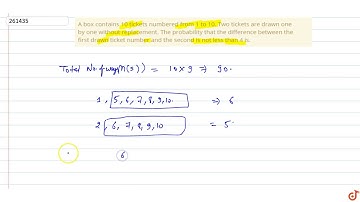 261435
A box contains 10 tickets numbered from 1 to 10. Two tickets are drawn one
by one without replacement. The probability that the difference between the
first drawn ticket number and the second is not less than 4 is
Total No. of ways n(s) = 10 x 9 ⇒ 90.
1, 5, 6, 7, 8, 9, 10. ⇒ 6
2, 6, 7, 8, 9, 10 = 5
6